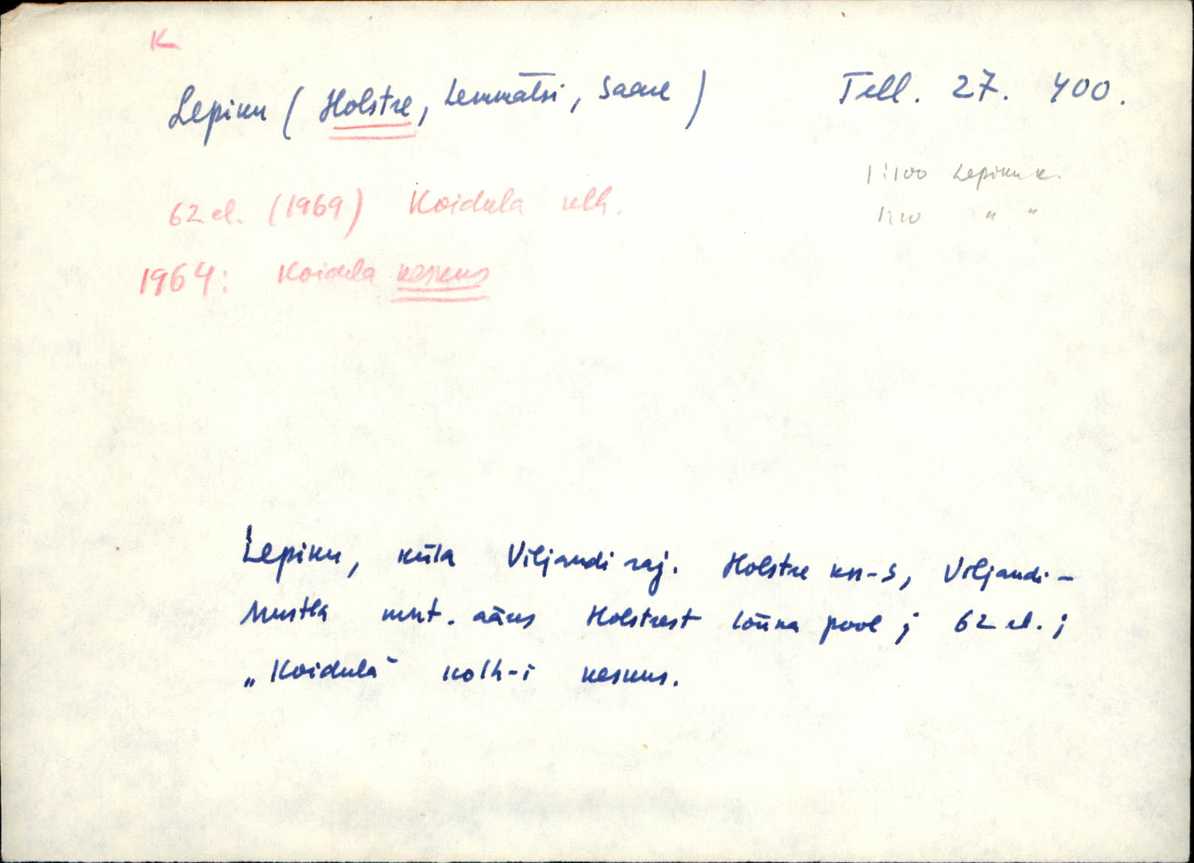 K
Lepiku (Holstre, Lemmatsi, Saare) Tell. 27. 400.
1:100 Lepiku k.
62 el. (1969) Koidula klh.
1:10 " "
1964: Koidula keskus
Lepiku, küla Viljandi raj. Holstre kn-s, Viljandi-
Mustla mnt. ääres Holstrest lõuna pool; 62 el.;
„Koidula" kolh-i keskus.